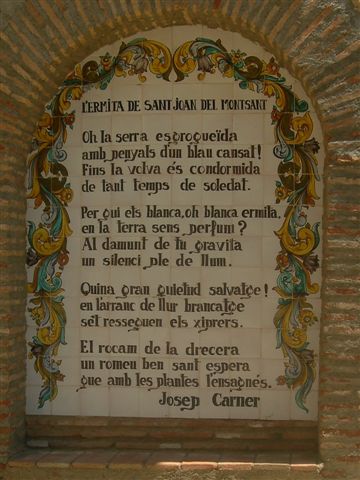 L'ERMITA DE SANT JOAN DEL MONTSANT
Oh la serra esgrogueïda
amb penyals d'un blau cansat!
Fins la volva és condormida
de tant temps de soledat.
Per qui els blanca, oh blanca ermita,
en la terra sens perfum?
Al damunt de tu gravita
un silenci ple de llum.
Quina gran quietud salvatge!
en l'arranc de llur brancatge
se't resseguen els xiprers.
El rocam de la drecera
un romeu ben sant espera
que amb les plantes l'ensagnés.
Josep Carner